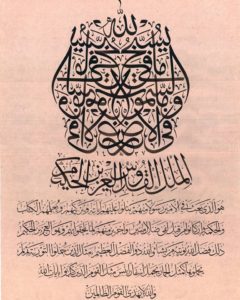 يسبح لله ما في السموات وما في الأرض
الملك القدوس العزيز الحكيم
هو الذي بعث في الأميين رسولا منهم يتلوا عليهم آياته ويزكيهم ويعلمهم الكتاب
والحكمة وإن كانوا من قبل لفي ضلال مبين وآخرين منهم لما يلحقوا بهم وهو العزيز الحكيم
ذلك فضل الله يؤتيه من يشاء والله ذو الفضل العظيم مثل الذين حملوا التورية ثم لم
يحملوها كمثل الحمار يحمل أسفارا بئس مثل القوم الذين كذبوا بآيات الله
والله لا يهدي القوم الظالمين